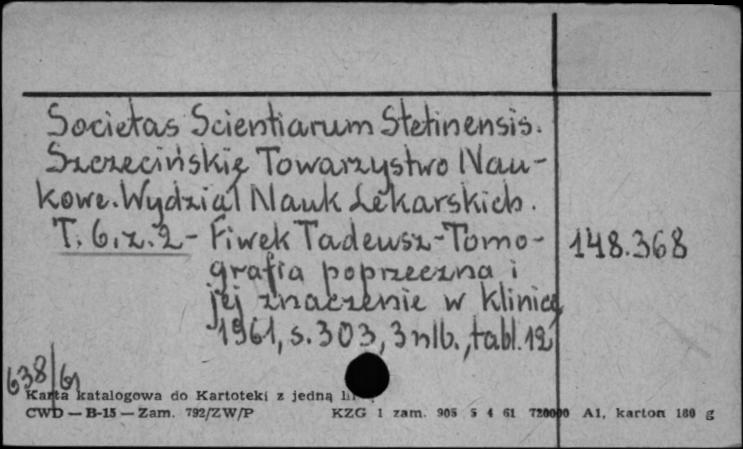 Societas Scientiarum Stetinensis.
Szczecińskię Towarzystwo Nau-
kowe. Wydział Nauk Lekarskich.
T. 6, z. 2 - Fiwek Tadeusz - Tomo-
148.368
grafia poprzeczna i
jej znaczenie w klinicę
1961, s. 303, 3 nlb., tabl. 12
638/61
Karta katalogowa do Kartoteki z jedną
CWD — B-15 — Zam. 792/ZW/P KZG 1 zam. 905 5 4 61 A1, karton 180 g